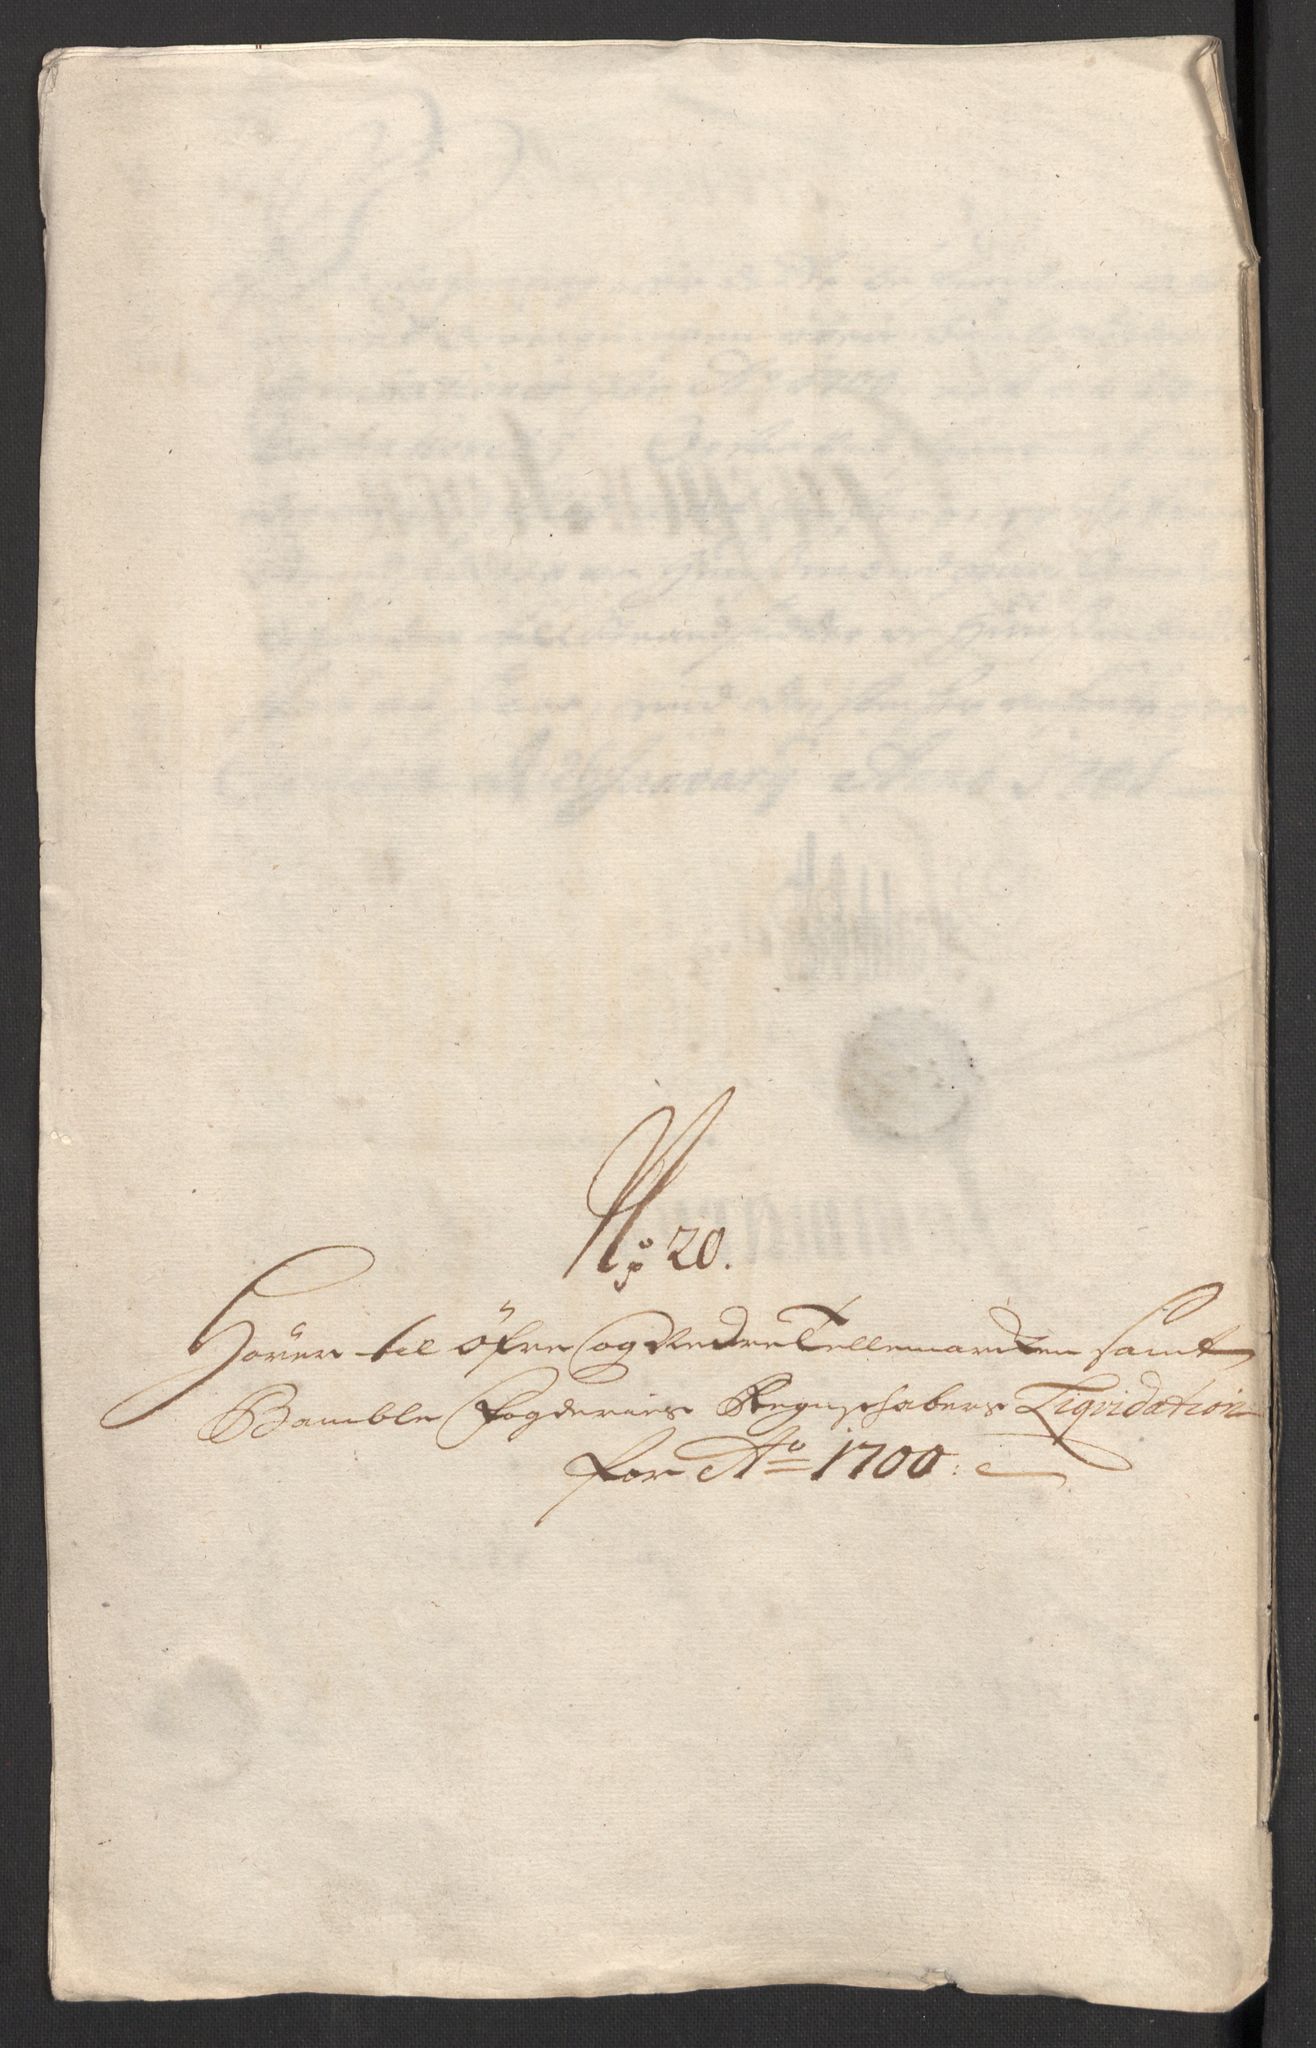 No: 20.
Hörer til Öfre og Nedre Tellemarcken samt
Bamble Fogderies Regnschabers Liqvidation
for Ao 1700.